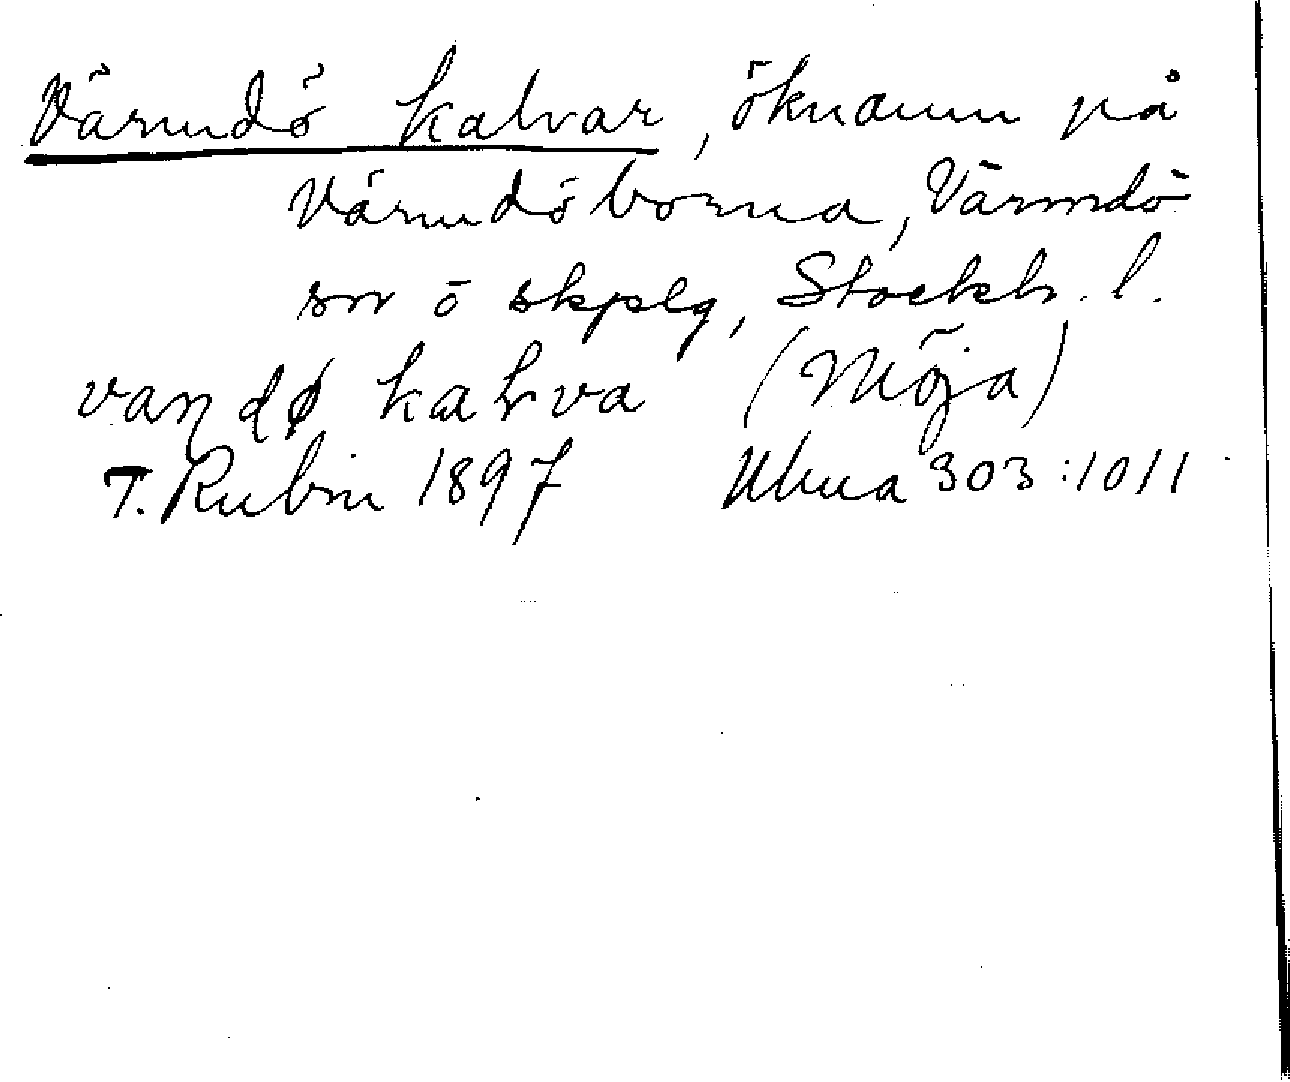 Värmdö kalvar, öknamn på
Värmdöborna, Värmdö
sn o skplg, Stockh. l.
(Möja)
T. Rubin 1897 Uluma 303:1011